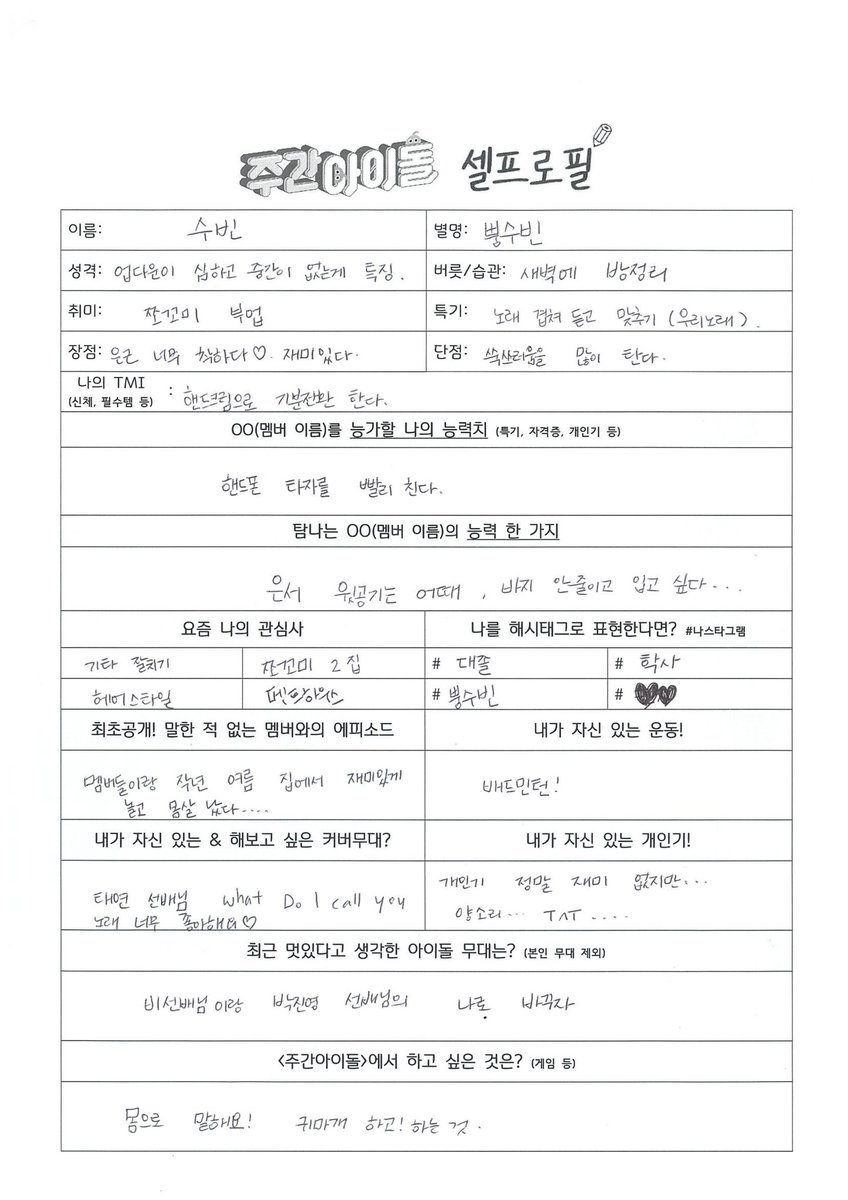 주간아이돌 셀프로필
이름: 수빈
별명: 뿡수빈
성격: 업다운이 심하고 중간이 없는게 특징.
버릇/습관: 새벽에 방정리
취미: 쪼꼬미 부업
특기: 노래 겹쳐 듣고 맞추기 (우리노래).
장점: 은근 너무 착하다♡. 재미있다.
단점: 쑥쓰러움을 많이 탄다.
나의 TMI
(신체, 필수템 등) : 핸드크림으로 기분전환 한다.
OO(멤버 이름)를 능가할 나의 능력치 (특기, 자격증, 개인기 등)
핸드폰 타자를 빨리 친다.
탐나는 OO(멤버 이름)의 능력 한 가지
은서 윗공기는 어때, 바지 안줄이고 입고 싶다...
요즘 나의 관심사
나를 해시태그로 표현한다면? #나스타그램
기타 잘치기
쪼꼬미 2집
# 대졸
# 학사
헤어스타일
펜트하우스
# 뿡수빈
# ♥♥♥
최초공개! 말한 적 없는 멤버와의 에피소드
내가 자신 있는 운동!
멤버들이랑 작년 여름 집에서 재미있게
놀고 몸살 났다....
배드민턴!
내가 자신 있는 & 해보고 싶은 커버무대?
내가 자신 있는 개인기!
태연 선배님 what Do I call you
노래 너무 좋아해여♡
개인기 정말 재미 없지만...
양소리... T^T ....
최근 멋있다고 생각한 아이돌 무대는? (본인 무대 제외)
비선배님이랑 박진영 선배님의 나로 바꾸자
<주간아이돌>에서 하고 싶은 것은? (게임 등)
몸으로 말해요! 귀마개 하고! 하는 것.